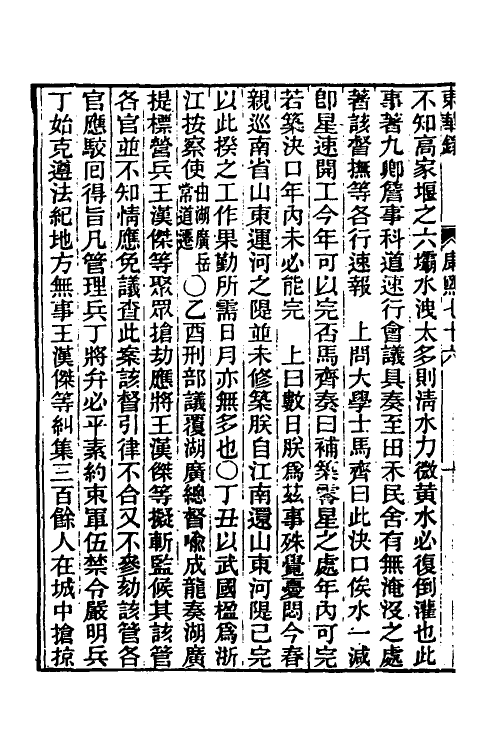 東華錄 康熙七十六
不知高家堰之六壩水洩太多則淸水力微黃水必復倒灌也此
事著九卿詹事科道速行會議具奏至田禾民舍有無淹沒之處
著該督撫等各行速報　上問大學士馬齊曰此決口俟水一減
卽星速開工今年可以完否馬齊奏曰補築零星之處年內可完
若築決口年內未必能完　上曰數日朕爲茲事殊覺憂悶今春
親巡南省山東運河之隄並未修築朕自江南還山東河隄已完
以此揆之工作果勤所需日月亦無多也〇丁丑以武國楹爲浙
江按察使由湖廣岳常道遷〇乙酉刑部議覆湖廣總督喩成龍奏湖廣
提標營兵王漢傑等聚眾搶劫應將王漢傑等擬斬監候其該管
各官並不知情應免議查此案該督引律不合又不參劾該管各
官應駁囘得旨凡管理兵丁將弁必平素約束軍伍禁令嚴明兵
丁始克遵法紀地方無事王漢傑等糾集三百餘人在城中搶掠